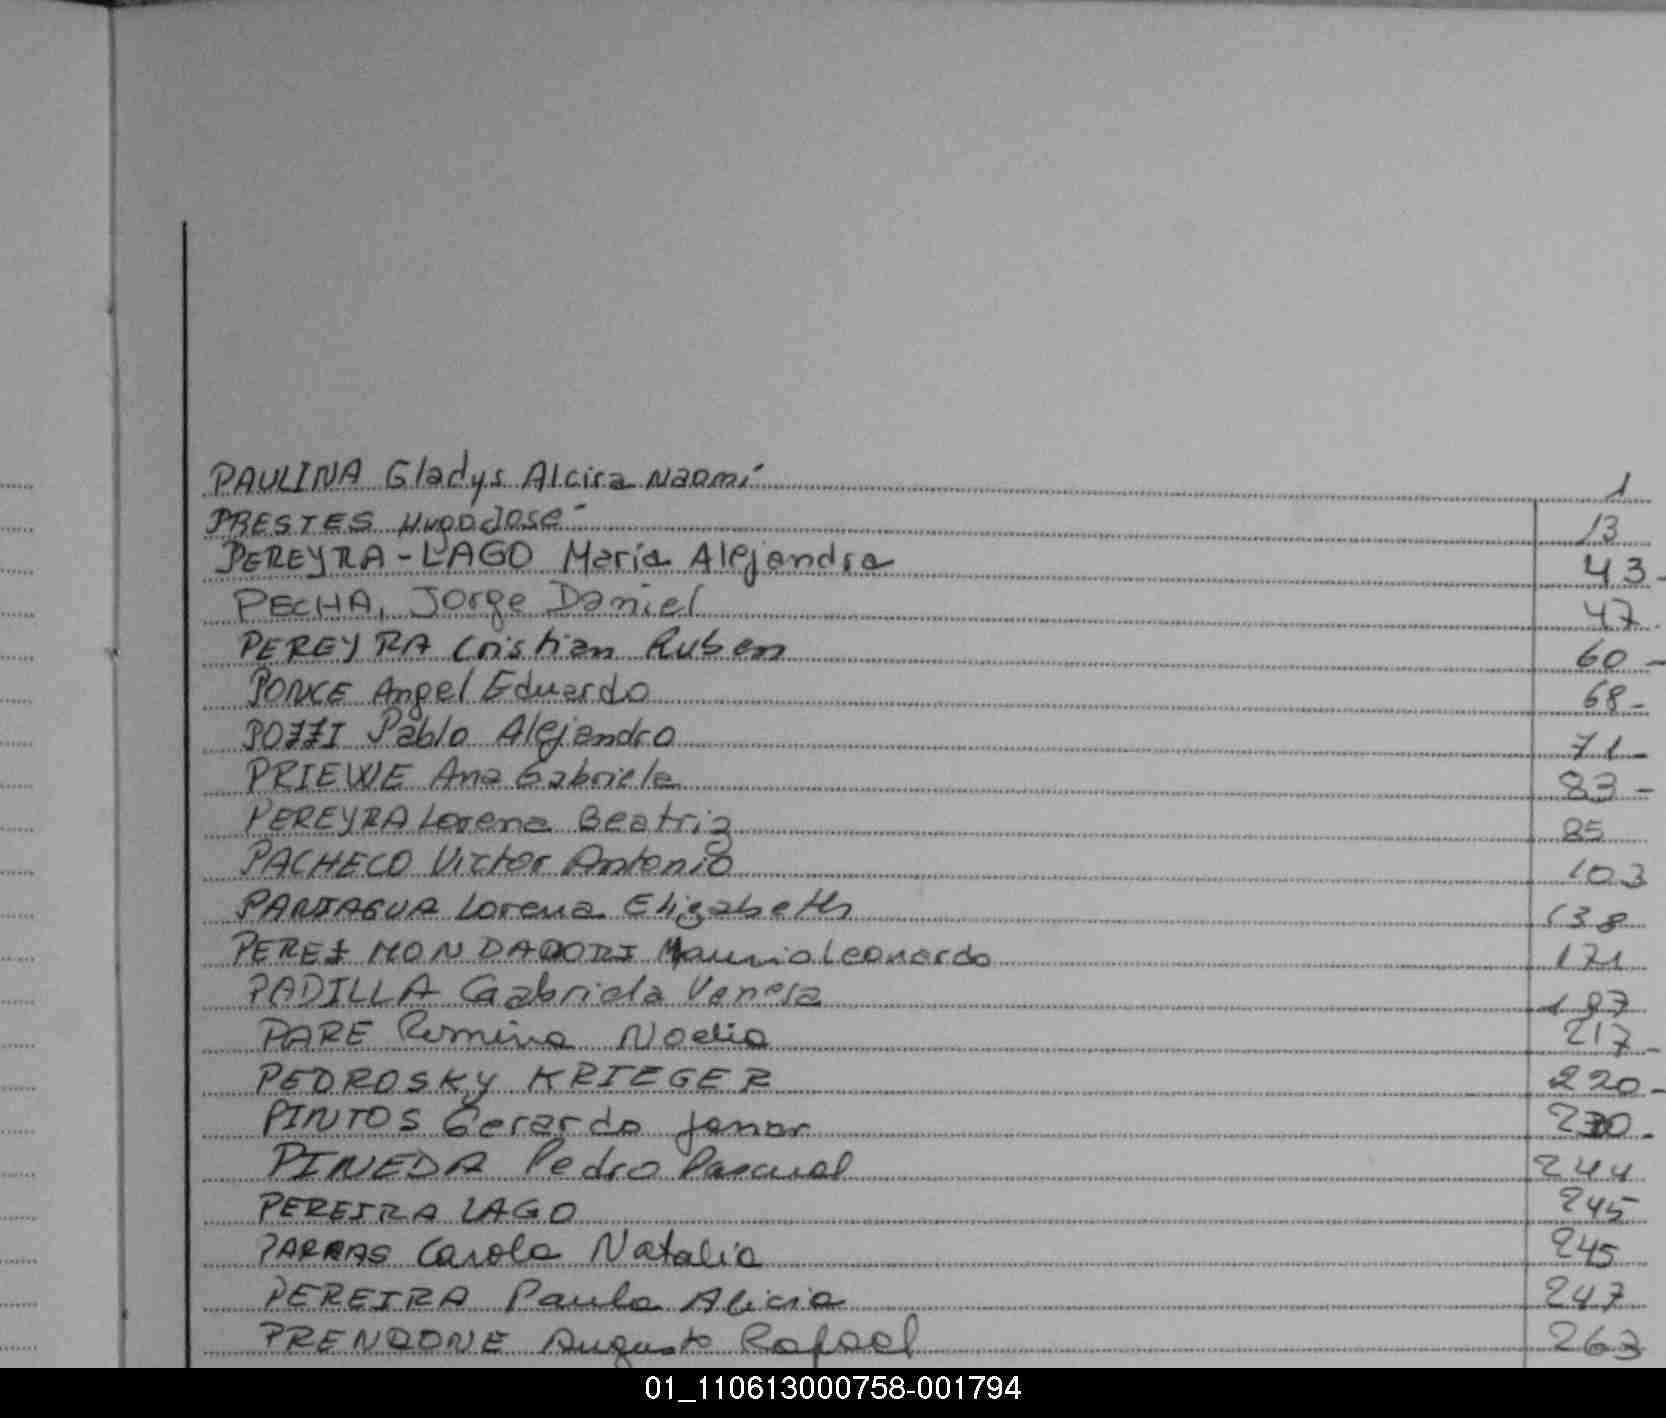 PAULINA Gladys Alcira Naomí 1
PRESTES Hugo José 13
PEREYRA-LAGO María Alejandra 43-
PECHA, Jorge Daniel 47-
PEREYRA Cristian Ruben 60-
PONCE Angel Eduardo 68-
POZZI Pablo Alejandro 71-
PRIEWE Ana Gabriela 83-
PEREYRA Lorena Beatriz 85
PACHECO Victor Antonio 103
PANIAGUA Lorena Elizabeth 138
PEREZ MONDADORI Mauricio Leonardo 171
PADILLA Gabriela Vanesa 187
PARE Romina Noelia 217-
PEDROSKY KRIEGER 220-
PINTOS Gerardo 230-
PINEDA Pedro Pascual 244
PEREIRA LAGO 245
PARRAS Carola Natalia 245
PEREIRA Paula Alicia 247
PRENDONE Augusto Rafael 263
01_110613000758-001794